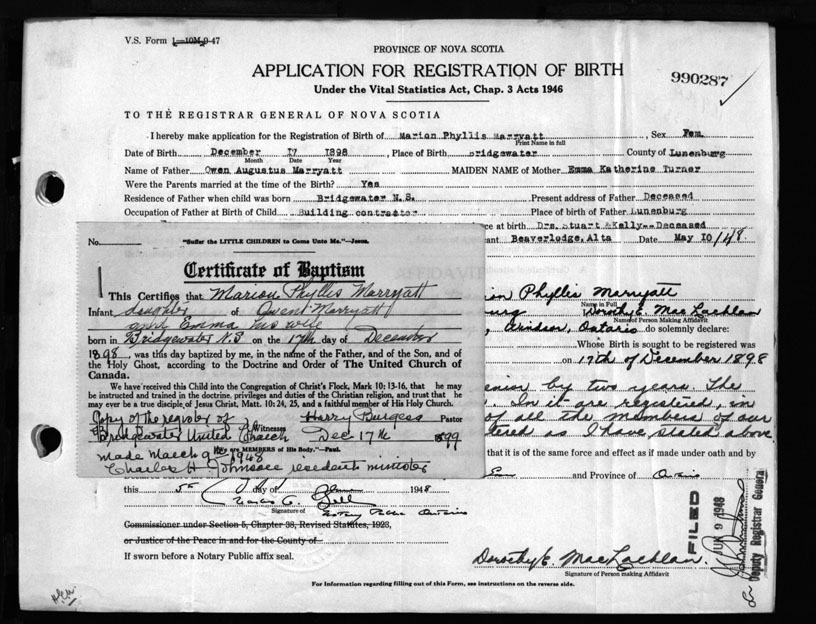 V.S. Form 1—10M-9-47
PROVINCE OF NOVA SCOTIA
APPLICATION FOR REGISTRATION OF BIRTH
990287
Under the Vital Statistics Act, Chap. 3 Acts 1946
TO THE REGISTRAR GENERAL OF NOVA SCOTIA
I hereby make application for the Registration of Birth of Marion Phyllis Marryatt, Sex Fem.
Print Name in full
Date of Birth December 17 1898, Place of Birth Bridgewater County of Lunenburg
Month Date Year
Name of Father Owen Augustus Marryatt MAIDEN NAME of Mother Emma Katherine Turner
Were the Parents married at the time of the Birth? Yes
Residence of Father when child was born Bridgewater N.S. Present address of Father Deceased
Occupation of Father at Birth of Child Building contractor Place of birth of Father Lunenburg
at birth Drs. Stuart &Kelly--Deceased
Beaverlodge, Alta Date May 10/48.
No. "Suffer the LITTLE CHILDREN to Come Unto Me."—Jesus.
Certificate of Baptism
This Certifies that Marion Phyllis Marryatt
Infant daughter of Owen Marryatt
and Emma his wife
born in Bridgewater N.S on the 17th day of December
1898, was this day baptized by me, in the name of the Father, and of the Son, and of
the Holy Ghost, according to the Doctrine and Order of The United Church of
Canada.
We have received this Child into the Congregation of Christ's Flock, Mark 10:13-16, that he may
be instructed and trained in the doctrine, privileges and duties of the Christian religion, and trust that he
may ever be a true disciple of Jesus Christ, Matt. 10:24, 25, and a faithful member of His Holy Church.
Copy of the register of Harry Burgess Pastor
Witnesses
Bridgewater United Church Dec 17th 1899
made March 9-1948 We are MEMBERS of His Body."—Paul.
Charles H Johnson residents minister
Phyllis Marryatt
Name in Full
Dorothy E. MacLachlan
Name of Person Making Affidavit
Windsor, Ontario do solemnly declare:
Whose Birth is sought to be registered
on 17th of December 1898
by two years. The
In it are registered, in
of all the members of our
as I have stated above
that it is of the same force and effect as if made under oath and by
and Province of Ontario
this 5th day of 1948
Signature of Notary Public Ontario
Commissioner under Section 5, Chapter 38, Revised Statutes, 1923,
or Justice of the Peace in and for the County of
If sworn before a Notary Public affix seal.
Dorothy E. MacLachlan.
Signature of Person making Affidavit
FILED
JUN 9 1948
Deputy Registrar General
For Information regarding filling out of this Form, see instructions on the reverse side.